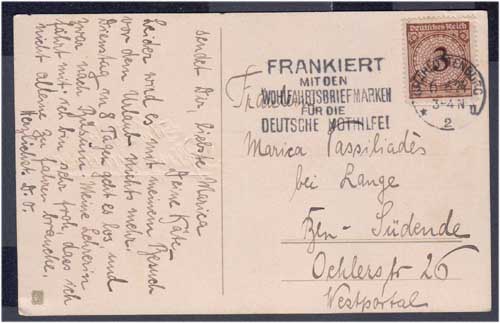 sendet Dir, liebste Marica
Deine Käte.
Leider wird es mit meinem Besuch
vor dem Urlaub nichts mehr.
Dienstag in 8 Tagen geht es los und
zwar nach Büsum. Meine Lehrerin
fährt mit. Ich bin sehr froh, dass ich
nicht alleine zu fahren brauche.
Herzlichst D. O.
Deutsches Reich
3
CHARLOTTENBURG
3-4 N
2
FRANKIERT
MIT DEN
WOHLFAHRTSBRIEFMARKEN
FÜR DIE
DEUTSCHE NOTHILFE!
Marica Paspiliadès
bei Lange
Bln-Südende
Oehlerstr 26
Westportal